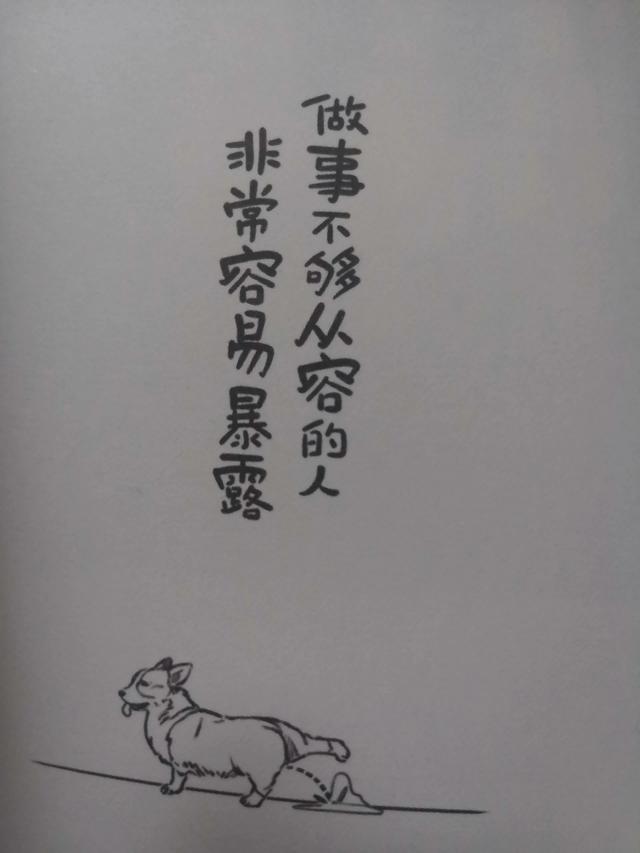 做事不够从容的人
非常容易暴露